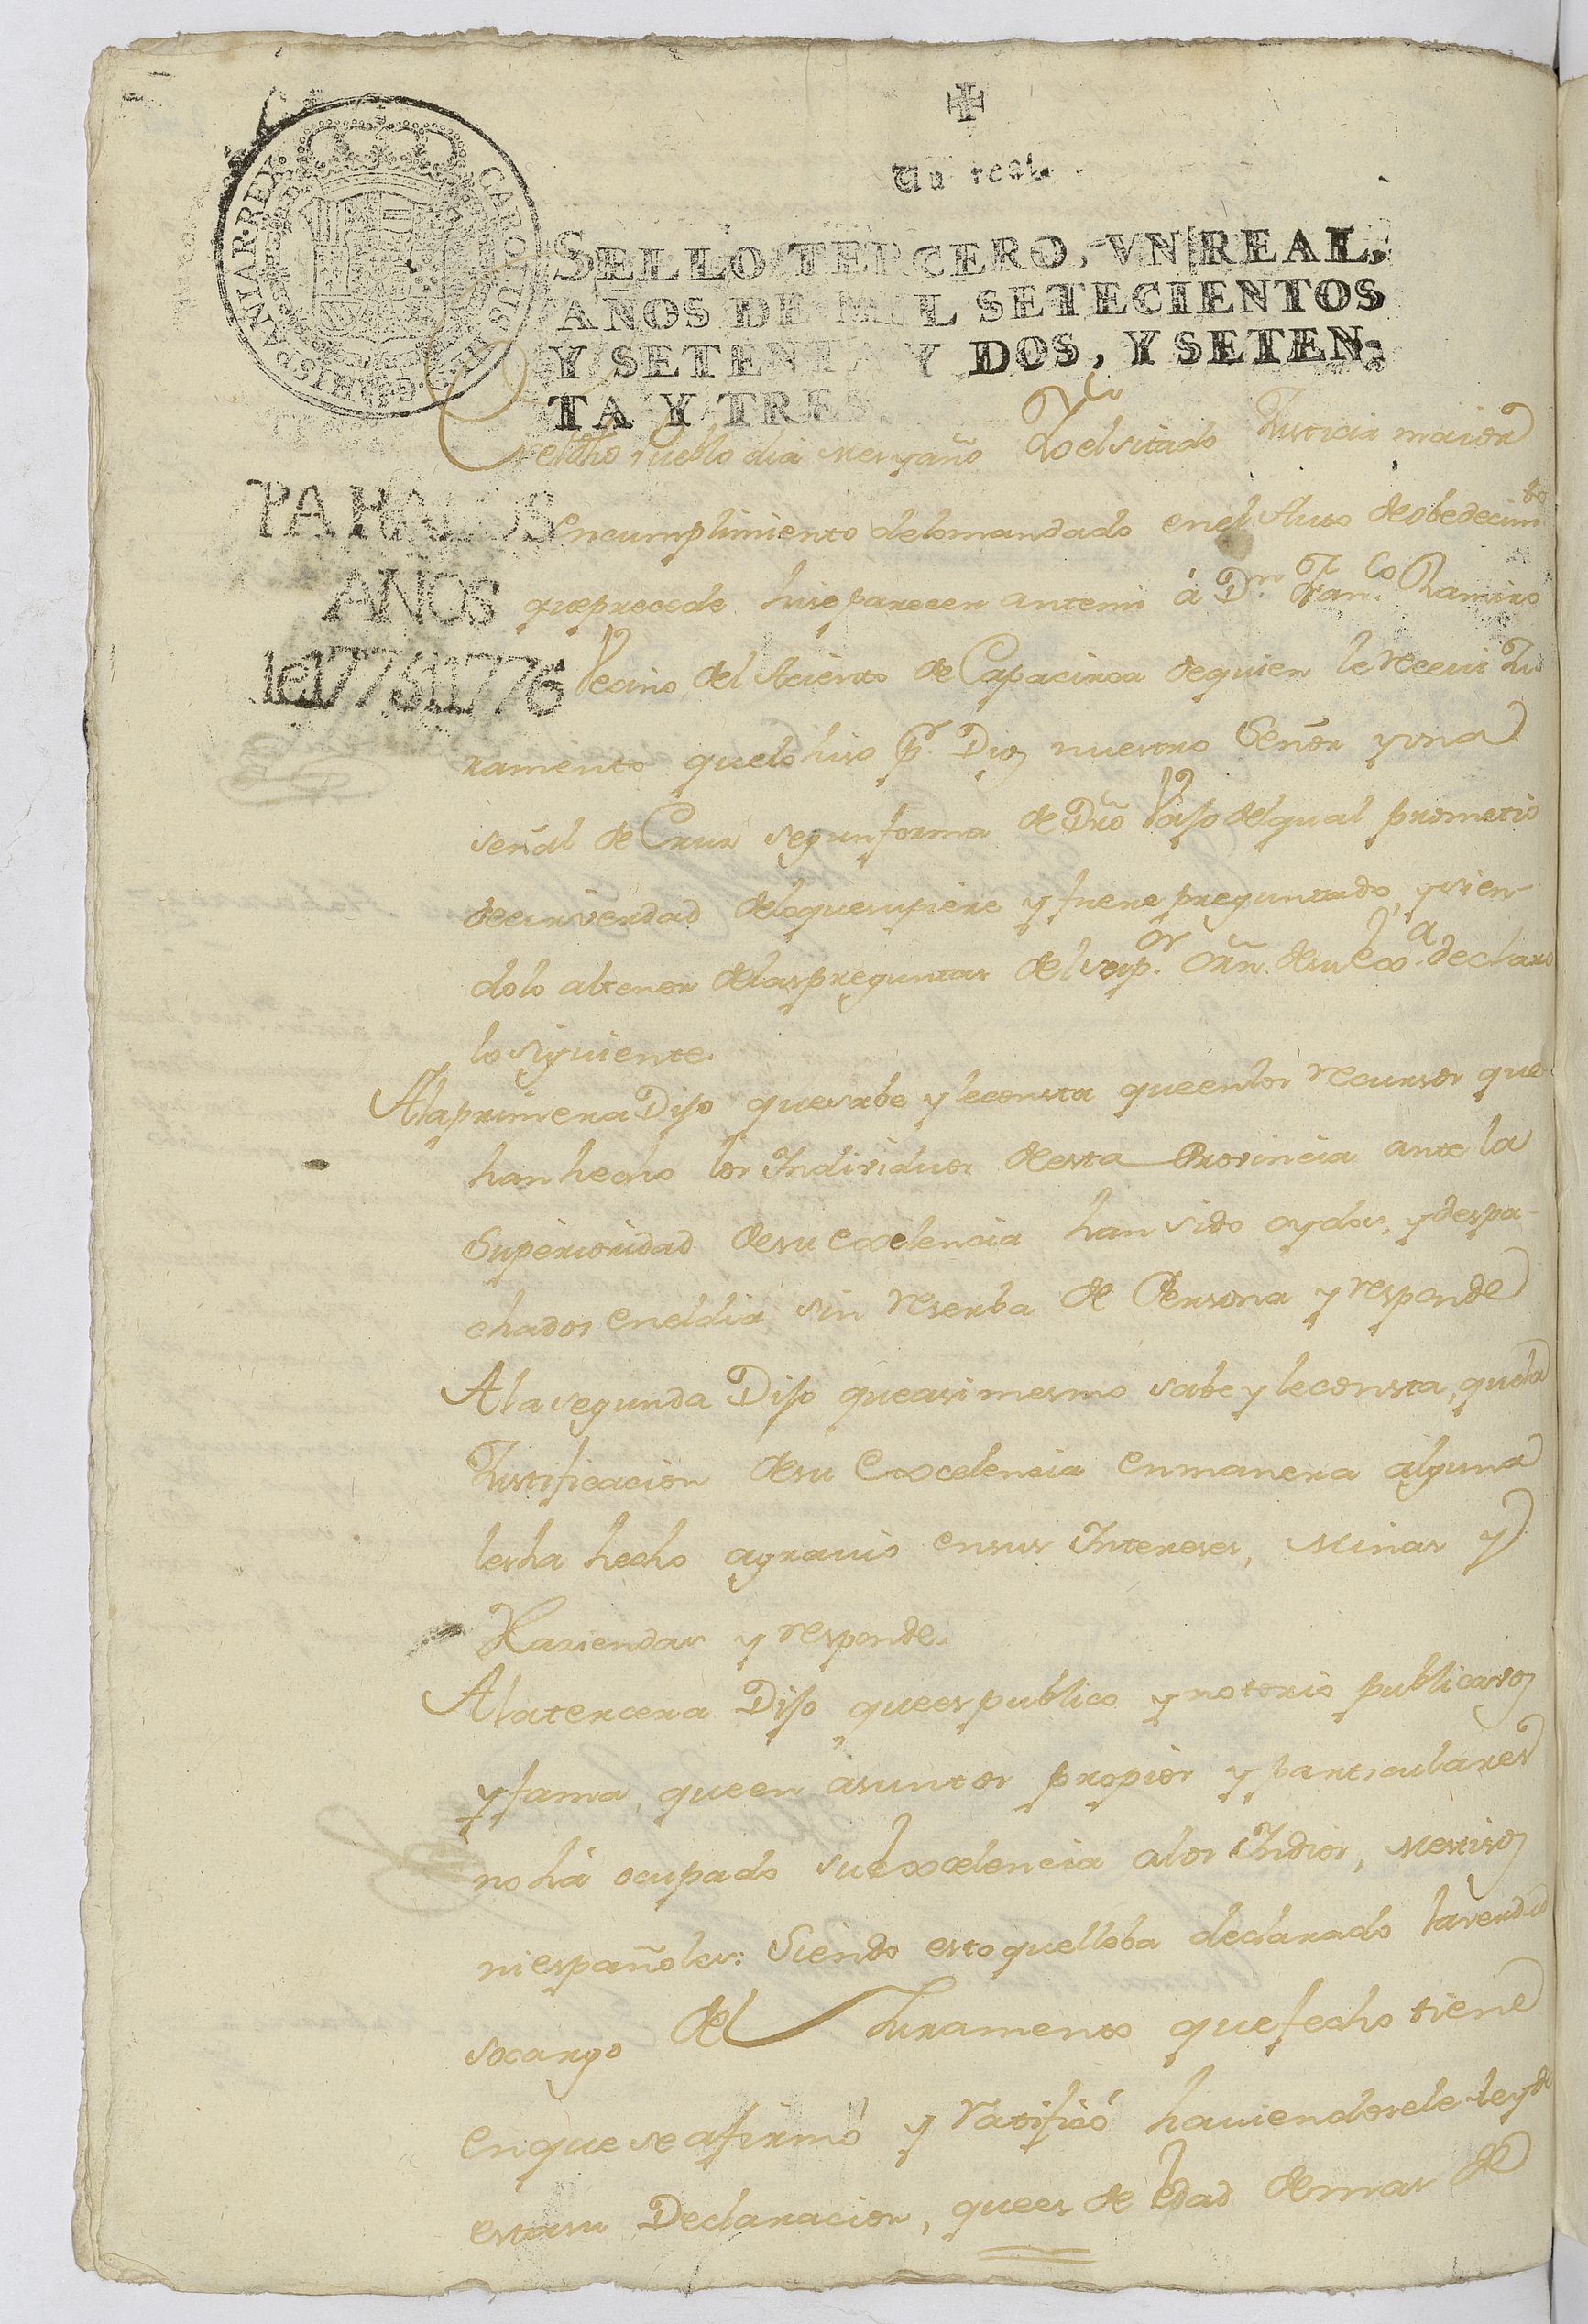 Un real.
SELLO TERCERO, VN REAL,
AÑOS DE MIL SETECIENTOS
Y SETENTA Y DOS, Y SETEN-
TA Y TRES.
CAROLUS III D G HISPANIAR REX
PARA LOS
AÑOS
de 1775 1776
En el dho Pueblo dia mes y año Yo el sitado Justicia maior
en cumplimiento de lo mandado en el Auto de obedecimto
que precede hise parecer ante mi á Dn Franco Ramiro
Vecino del Aciento de Capacirca de quien le receui Ju
ramento que lo hiso pr Dios nuestro Señor y una
señal de Crux segun forma de Dro Vajo del qual prometio
decir verdad de lo que supiere y fuere preguntado, y sien-
dolo al tenor de las preguntas del supor orn. de su Exa declaro
lo siguiente.
A la primera Dijo que sabe y le consta que en los recursos que
han hecho los Individuos de esta Provincia ante la
Superioridad de su Exelencia han sido oydos, y despa-
chados en el dia sin reserba de Persona y responde
A la segunda Dijo que asi mesmo sabe y le consta, que la
Justificacion de su Excelencia en manera alguna
les ha hecho agrauio en sus Intereses, Minas y
Haziendas y responde.
A la tercera Dijo que es publico y notorio publica voz
y fama, que en asuntos propios y particulares
no há ocupado su Excelencia a los Indios, Mestisos
ni españoles: Siendo esto que lleba declarado la verdad
so cargo del Juramento que fecho tiene
en que se afirmó y ratificó hauiendosele leydo
esta su Declaracion, que es de edad de mas de